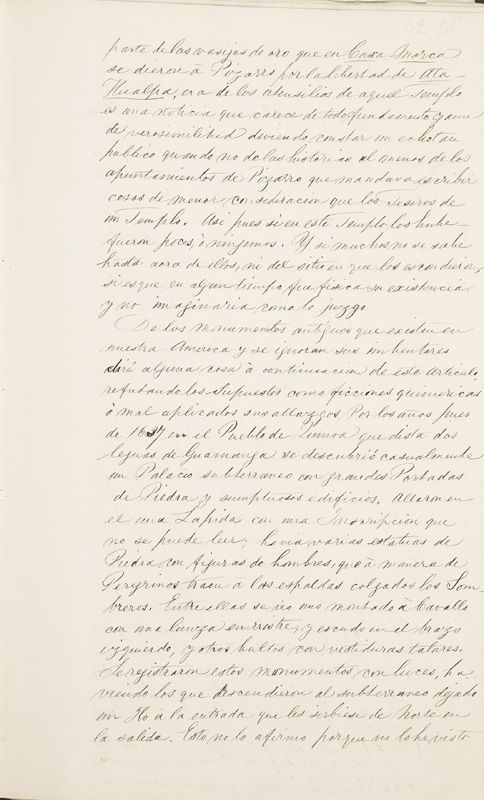 42 38
parte de las vasijas de oro que en Caxa Marca
se dieron à Pizarro por la libertad de Ata-
Hualpa, era de los utensilios de aquel Templo
es una noticia que carece de todo fundamento y aun
de verosimilitud deviendo constar un echo tan
publico quando no de las historias al menos de los
apuntamientos de Pizarro que mandava escribir
cosas de menor consideracion que los Tesoros de
un Templo. Asi pues si en este Templo los hubo
fueron pocos, ò ningunos. Y si muchos no se sabe
hasta aora de ellos, ni del sitio en que los escondieron,
si es que en algun tiempo fue fisica su existencia
y no imaginaria como lo juzgo
De los monumentos antiguos que existen en
nuestra America y se ignoran sus imbentores
diré alguna cosa à continuacion de este Articulo,
refutando los supuestos como ficciones quimericas
ò mal aplicados sus allazgos. Por los años pues
de 1637 en el Pueblo de Quinoa que dista dos
leguas de Guamanga se descubrió casualmente
un Palacio subterraneo con grandes Portadas
de Piedra y sumptuosos edificios. Allaron en
el una Lapida con una Inscripcion que
no se puede leer; havia varias estatuas de
Piedra con figuras de hombres, que à manera de
Peregrinos traen a las espaldas colgados los Som-
breros. Entre ellas se vio uno montado à Cavallo
con una lanza en rristre, y escudo en el brazo
izquierdo, y otros bultos con vestiduras talares.
Se registraron estos monumentos con luces, ha-
viendo los que descendieron al subterraneo dejado
un Ylo à la entrada que les sirbiese de Norte en
la salida. Esto no lo afirmo porque no lo he visto